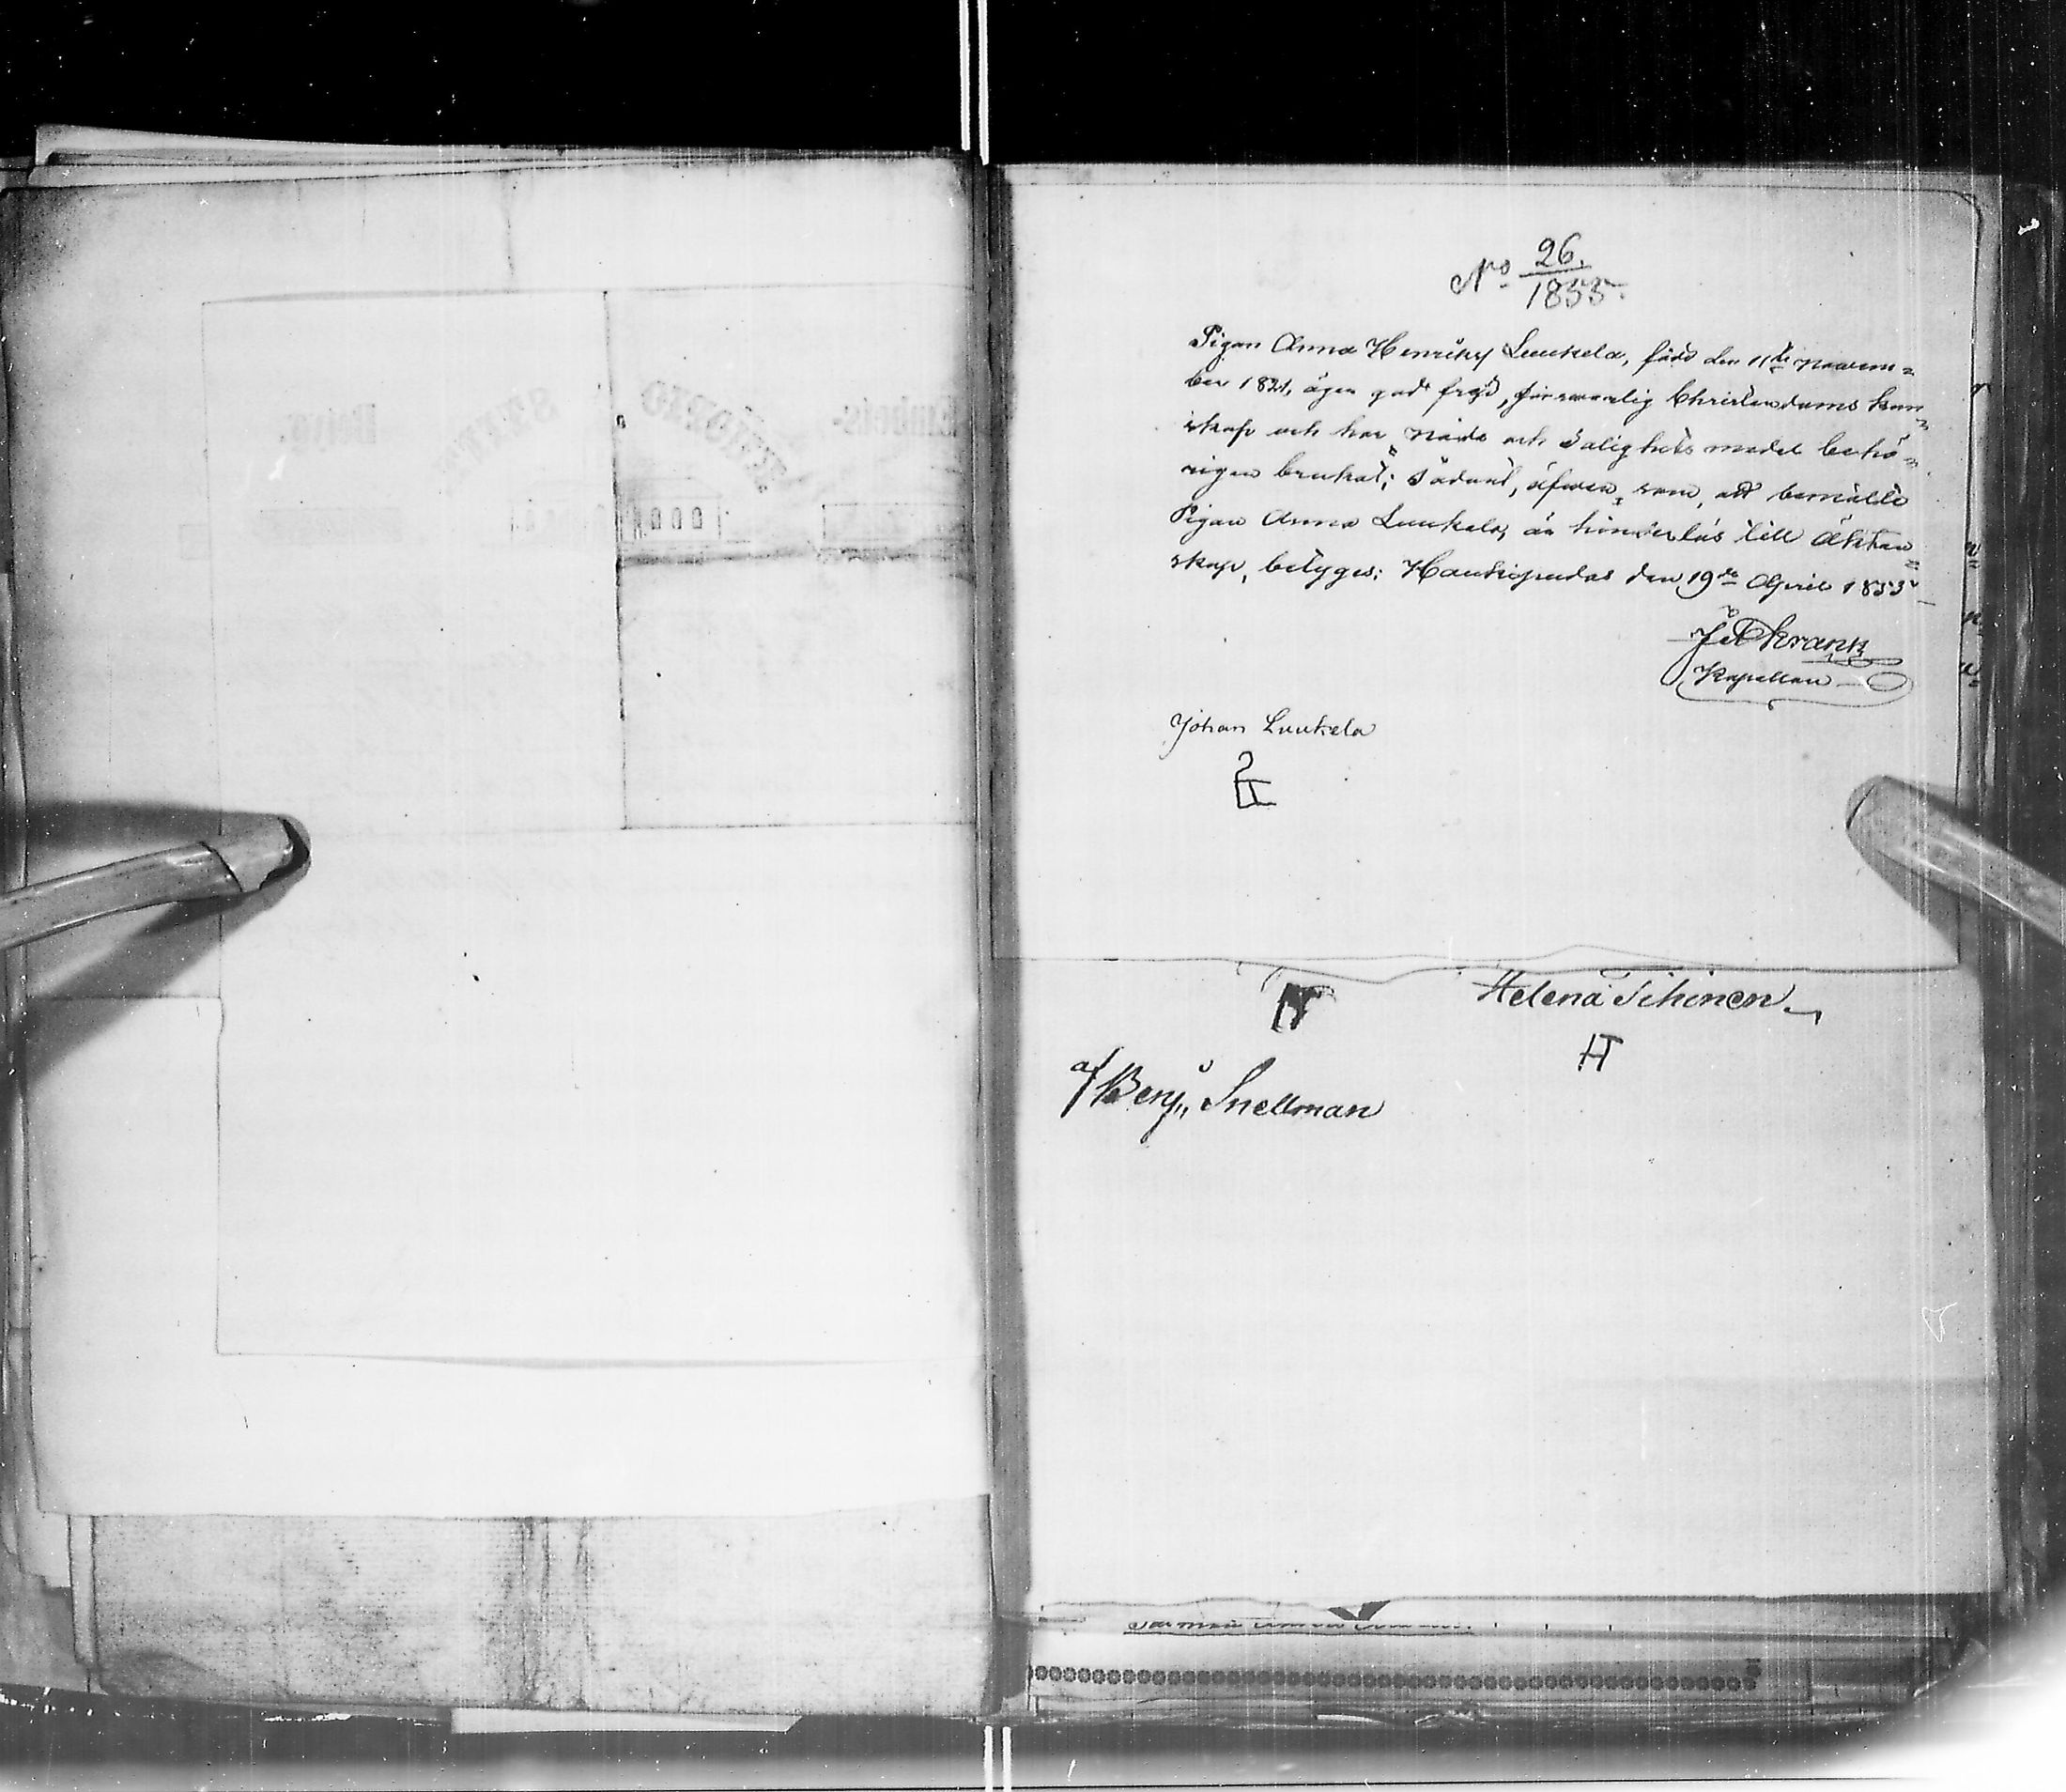 No 26.
1855.
Pigan Anna Henriksd Luukela, född den 11te novem=
ber 1821, äger god frejd, försvarlig Christendoms kun=
skap och har nåde och Salighets medel behö=
rigen brukat; Sådant, äfven som, att bemälte
Pigan Anna Luukela, är hinderlös till Äkten=
skap, betyges; Haukipudas den 19de April 1855
Kapellan
Johan Luukela
Helena Tihinen
HT
af Benj. Snellman